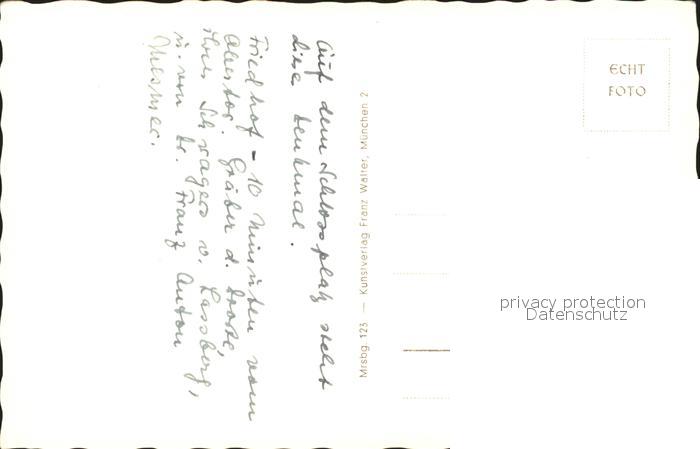 Auf dem Schlossplatz steht
diese Denkmal.
Friedhof - 10 Minuten vom
Obertor. Gräber d. Droste,
ihres Schwagers v. Lassberg,
u. von Dr. Franz Anton
Mesmer.
Mrsbg. 123 — Kunstverlag Franz Walter, München 2
ECHT
FOTO
privacy protection
Datenschutz